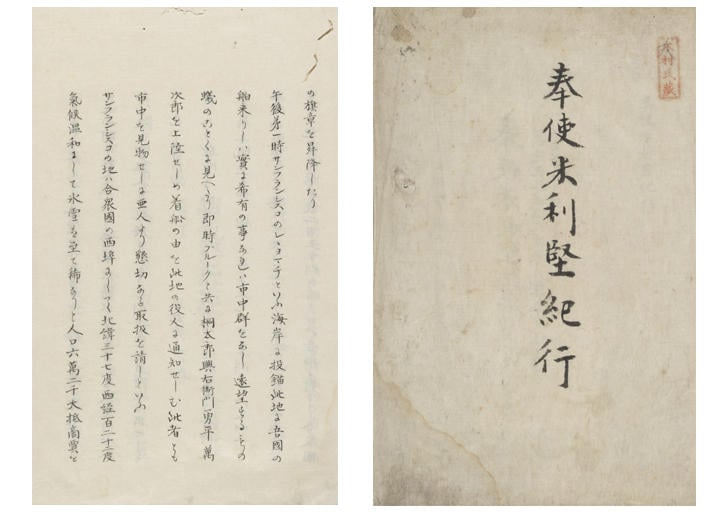 奉使米利堅紀行
木村氏蔵
の旗章を昇降したり
午後第一時サンフランシスコのレ、ヨマチといふ海岸に投錨此地に吾國の
船来りしハ實に希有の事なれハ市中群をなし遠望するもの
蟻のことくに見へたり即時ブルークと共に桐太郎興右衛門勇平萬
次郎を上陸せしめ着船の由を此地の役人に通知せしむ此者とも
市中を見物せしに亜人より懇切なる取扱を請しといふ
サンフランシスコの地ハ合衆國の西埠にして北緯三十七度西経百二十二度
氣候温和にして氷雪も至て稀なりと人口六萬二千大抵商賣を